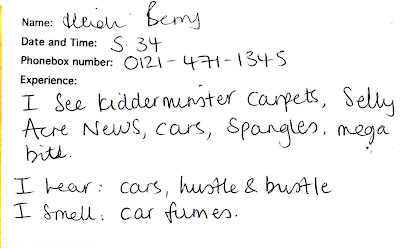 Name: Heidi Berry
Date and Time: 5.34
Phonebox number: 0121-471-1345
Experience:
I See kidderminster Carpets, Selly
Acre News, cars, Spangles, mega
bite.
I hear: cars, hustle & bustle
I smell: car fumes.